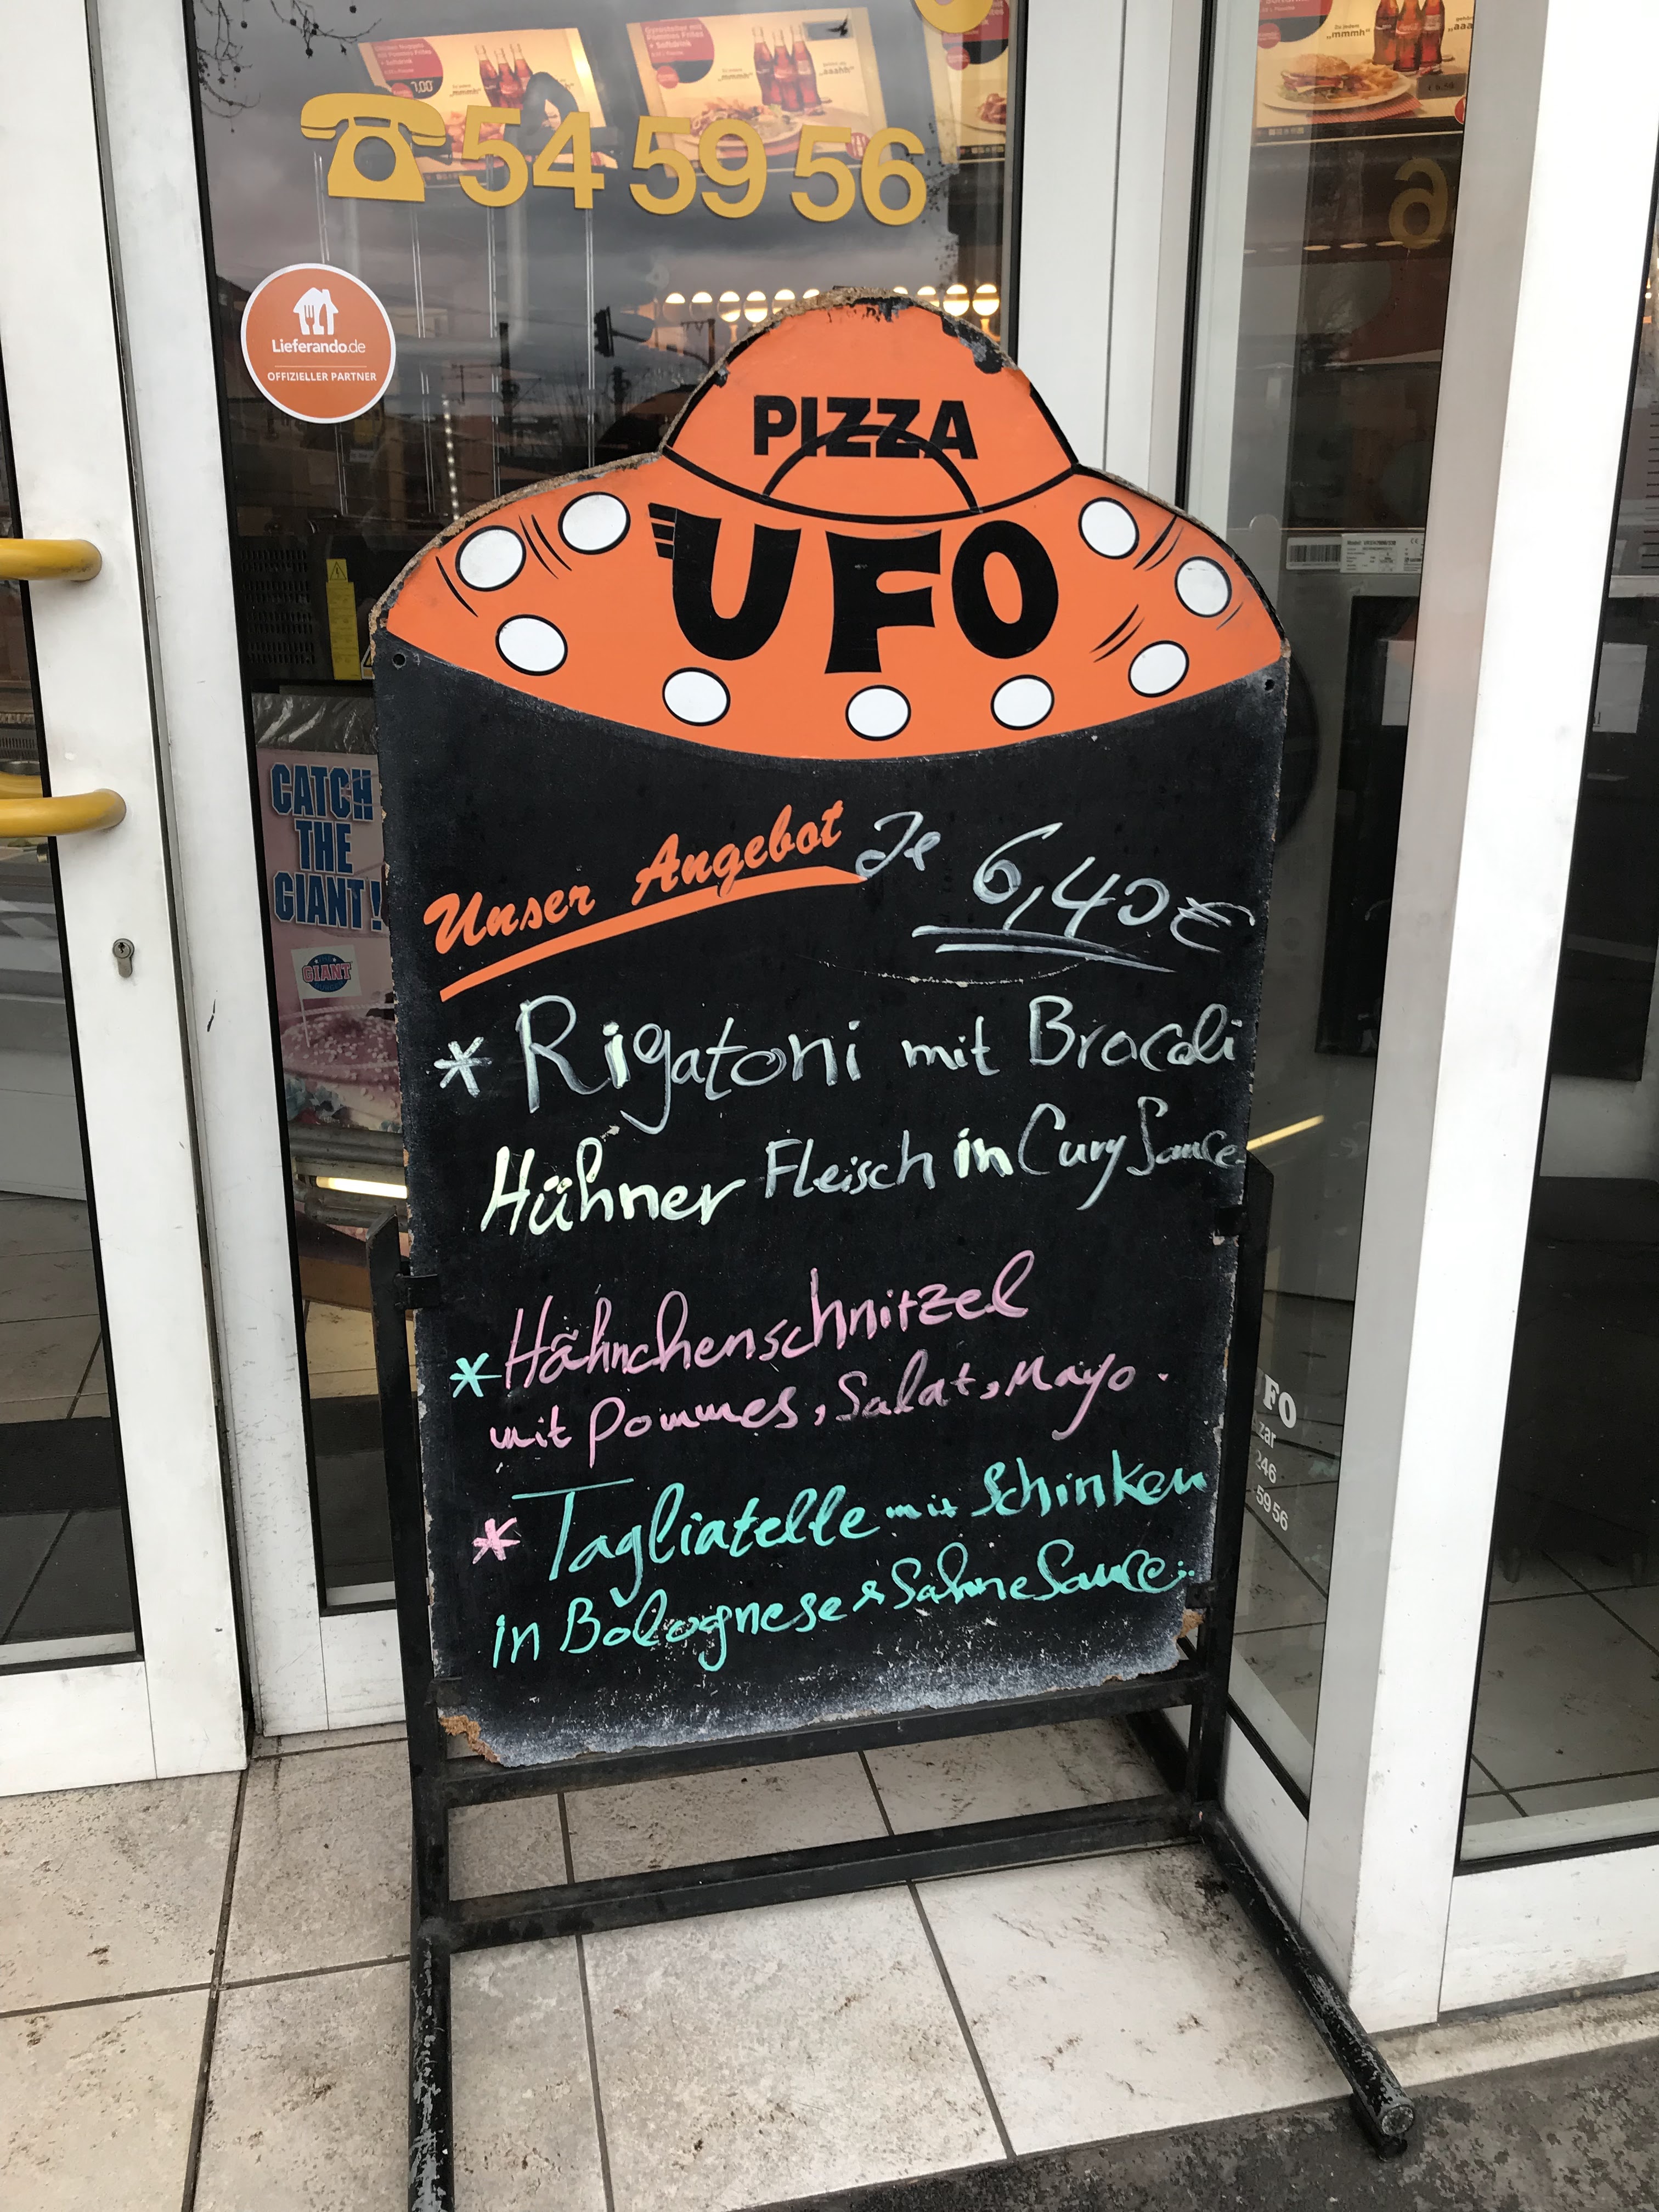 54 59 56
Lieferando.de
OFFIZIELLER PARTNER
PIZZA
UFO
CATCH
THE
GIANT!
GIANT
Unser Angebot Je 6,40€
* Rigatoni mit Brocoli
Hühner Fleisch in Cury Sauce
* Hähnchenschnitzel
mit Pommes, Salat, Mayo.
* Tagliatelle mit Schinken
in Bolognese & Sahne Sauce.
FO
zar
246
59 56